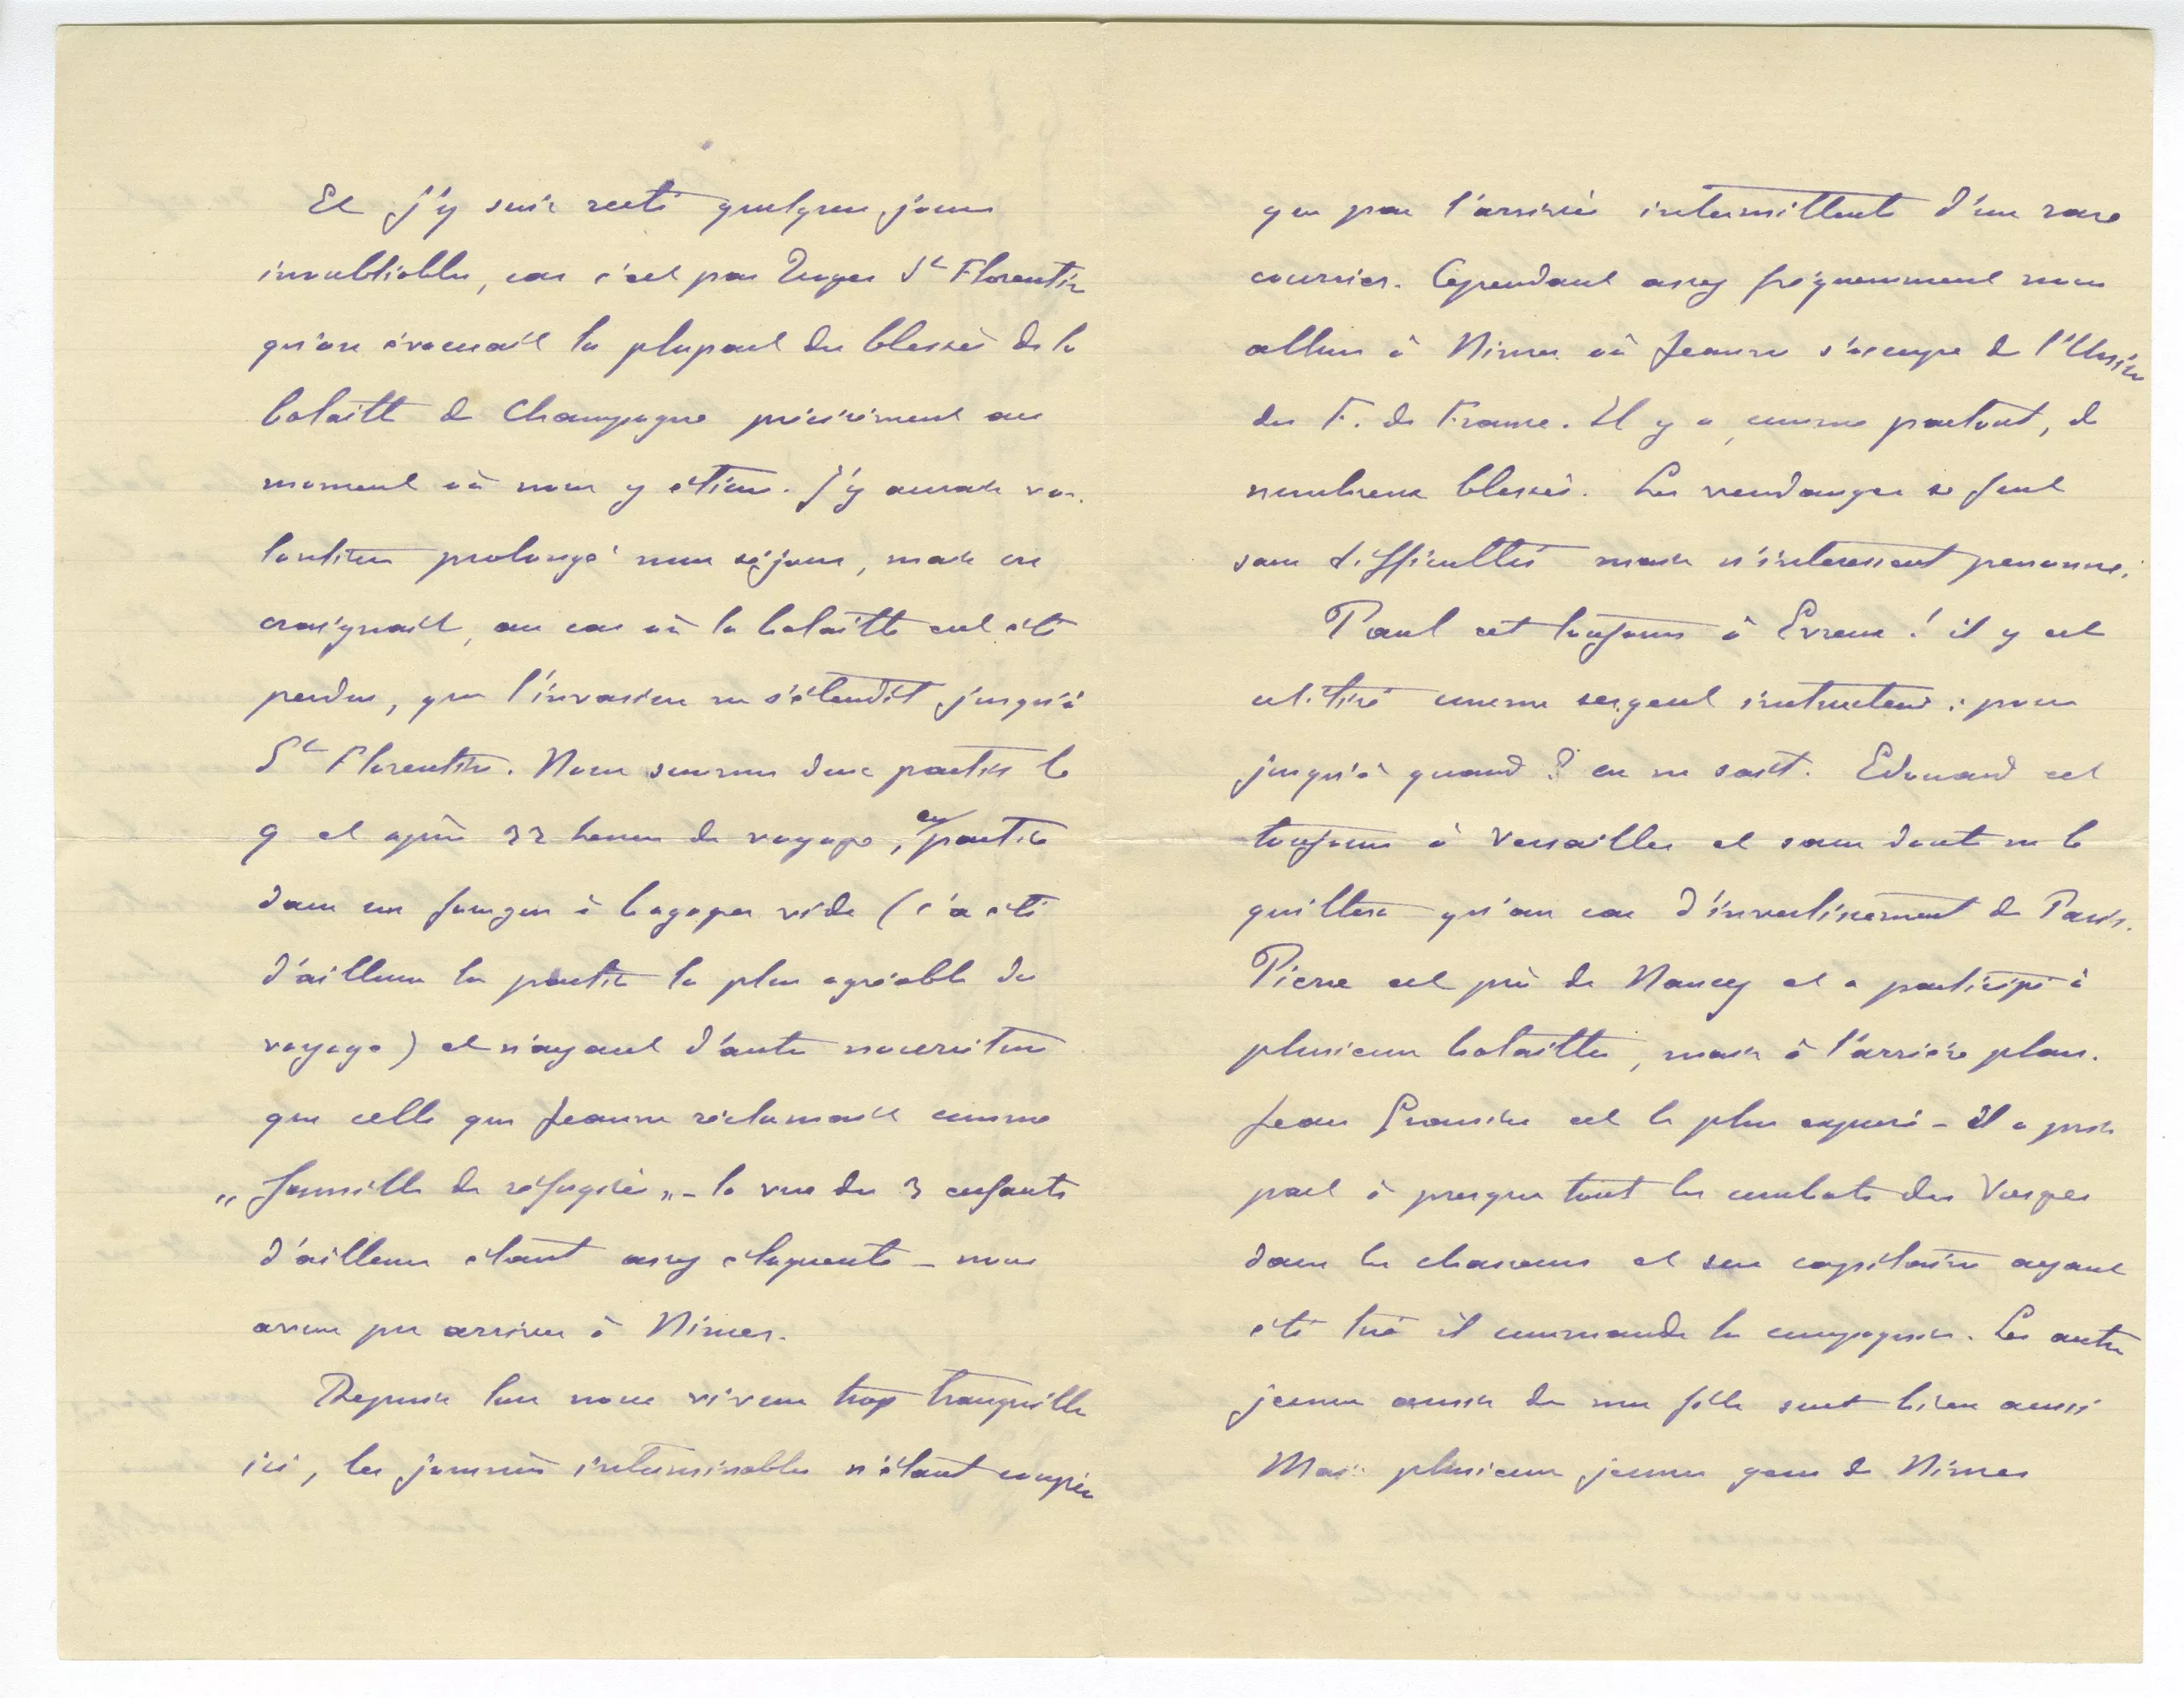 Et j'y suis resté quelques jours
inoubliables, car c'est par Troyes St Florentin
qu'on évacuait la plupart des blessés de la
bataille de Champagne précisément au
moment où nous y étions. J'y aurais vo-
lontiers prolongé mon séjour, mais on
craignait, au cas où la bataille eut été
perdue, que l'invasion ne s'étendît jusqu'à
St Florentin. Nous sommes donc partis le
9 et après 32 heures de voyage, en partie
dans un fourgon à bagages vide (ç'a été
d'ailleurs la partie la plus agréable du
voyage) et n'ayant d'autre nourriture
que celle que Jeanne réclamait comme
„famille de réfugiés„ - la vue des 3 enfants
d'ailleurs étant assez éloquente - nous
avons pu arriver à Nimes.
Depuis lors nous vivons trop tranquilles
ici, les journées interminables n'étant coupées
que par l'arrivée intermittente d'un rare
courrier. Cependant assez fréquemment nous
allons à Nimes où Jeanne s'occupe de l'Union
des F. de France. Il y a, comme partout, de
nombreux blessés. Les vendanges se font
sans difficultés mais n'intéressent personne.
Paul est toujours à Evreux ! il y est
utilisé comme sergent instructeur : pour
jusqu'à quand ? on ne sait. Edouard est
toujours à Versailles et sans doute ne le
quittera qu'au cas d'investissement de Paris.
Pierre est près de Nancy et a participé à
plusieurs batailles, mais à l'arrière plan.
Jean est le plus exposé - il a pris
part à presque tout les combats des Vosges
dans les chasseurs et son capitaine ayant
été tué il commande la compagnie. Les autres
jeunes amis de ma fille sont bien aussi
Mais plusieurs jeunes gens de Nimes